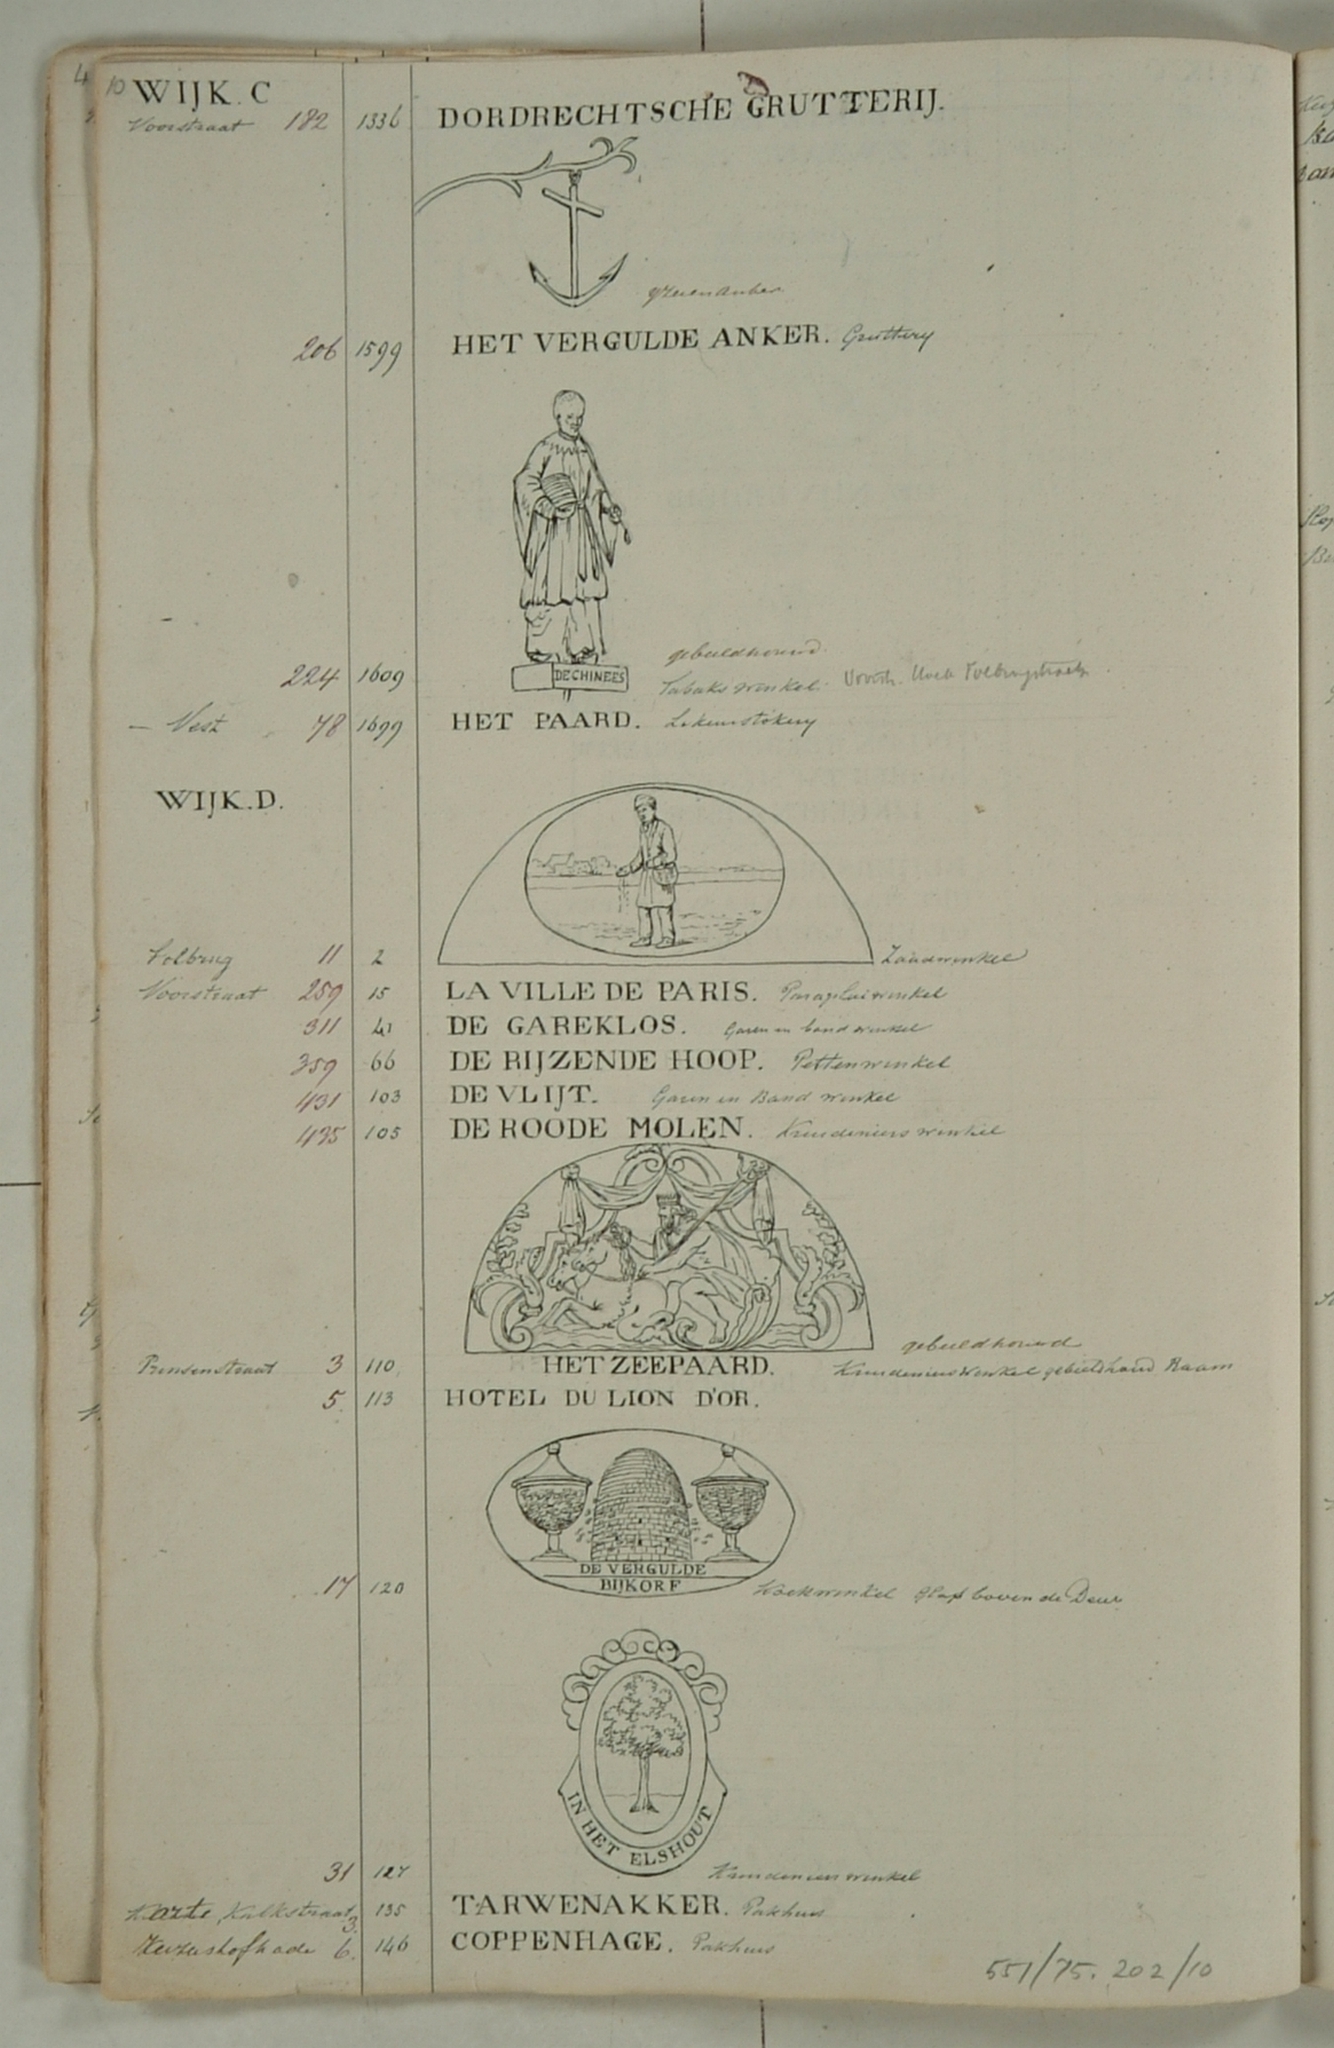 10 WIJK. C
Voorstraat 182 1336 DORDRECHTSCHE GRUTTERIJ.
yzeren anker
206 1599 HET VERGULDE ANKER. Gruttery
DE CHINEES
gebeeldhouwd
224 1609 Tabakswinkel. Voorstr. Hoek Tolbrugstraat
— Vest 78 1699 HET PAARD. Likeurstokery
WIJK. D.
Tolbrug 11 2 Zaadwinkel
Voorstraat 259 15 LA VILLE DE PARIS. Parapluiwinkel
311 41 DE GAREKLOS. Garen en band winkel
359 66 DE RIJZENDE HOOP. Pettenwinkel
431 103 DE VLIJT. Garen en Band winkel
435 105 DE ROODE MOLEN. Kruideniers winkel
gebeeldhouwd
Prinsenstraat 3 110 HET ZEEPAARD. Kruidenierswinkel Raam
5. 113 HOTEL DU LION D'OR.
DE VERGULDE
BIJKORF
17 120 Koekwinkel glas boven de Deur
IN HET ELSHOUT
31 127 Kruidenierswinkel
Korte Kalkstraat 3. 135 TARWENAKKER. Pakhuis
6. 146 COPPENHAGE. Pakhuis
551/75. 202/10